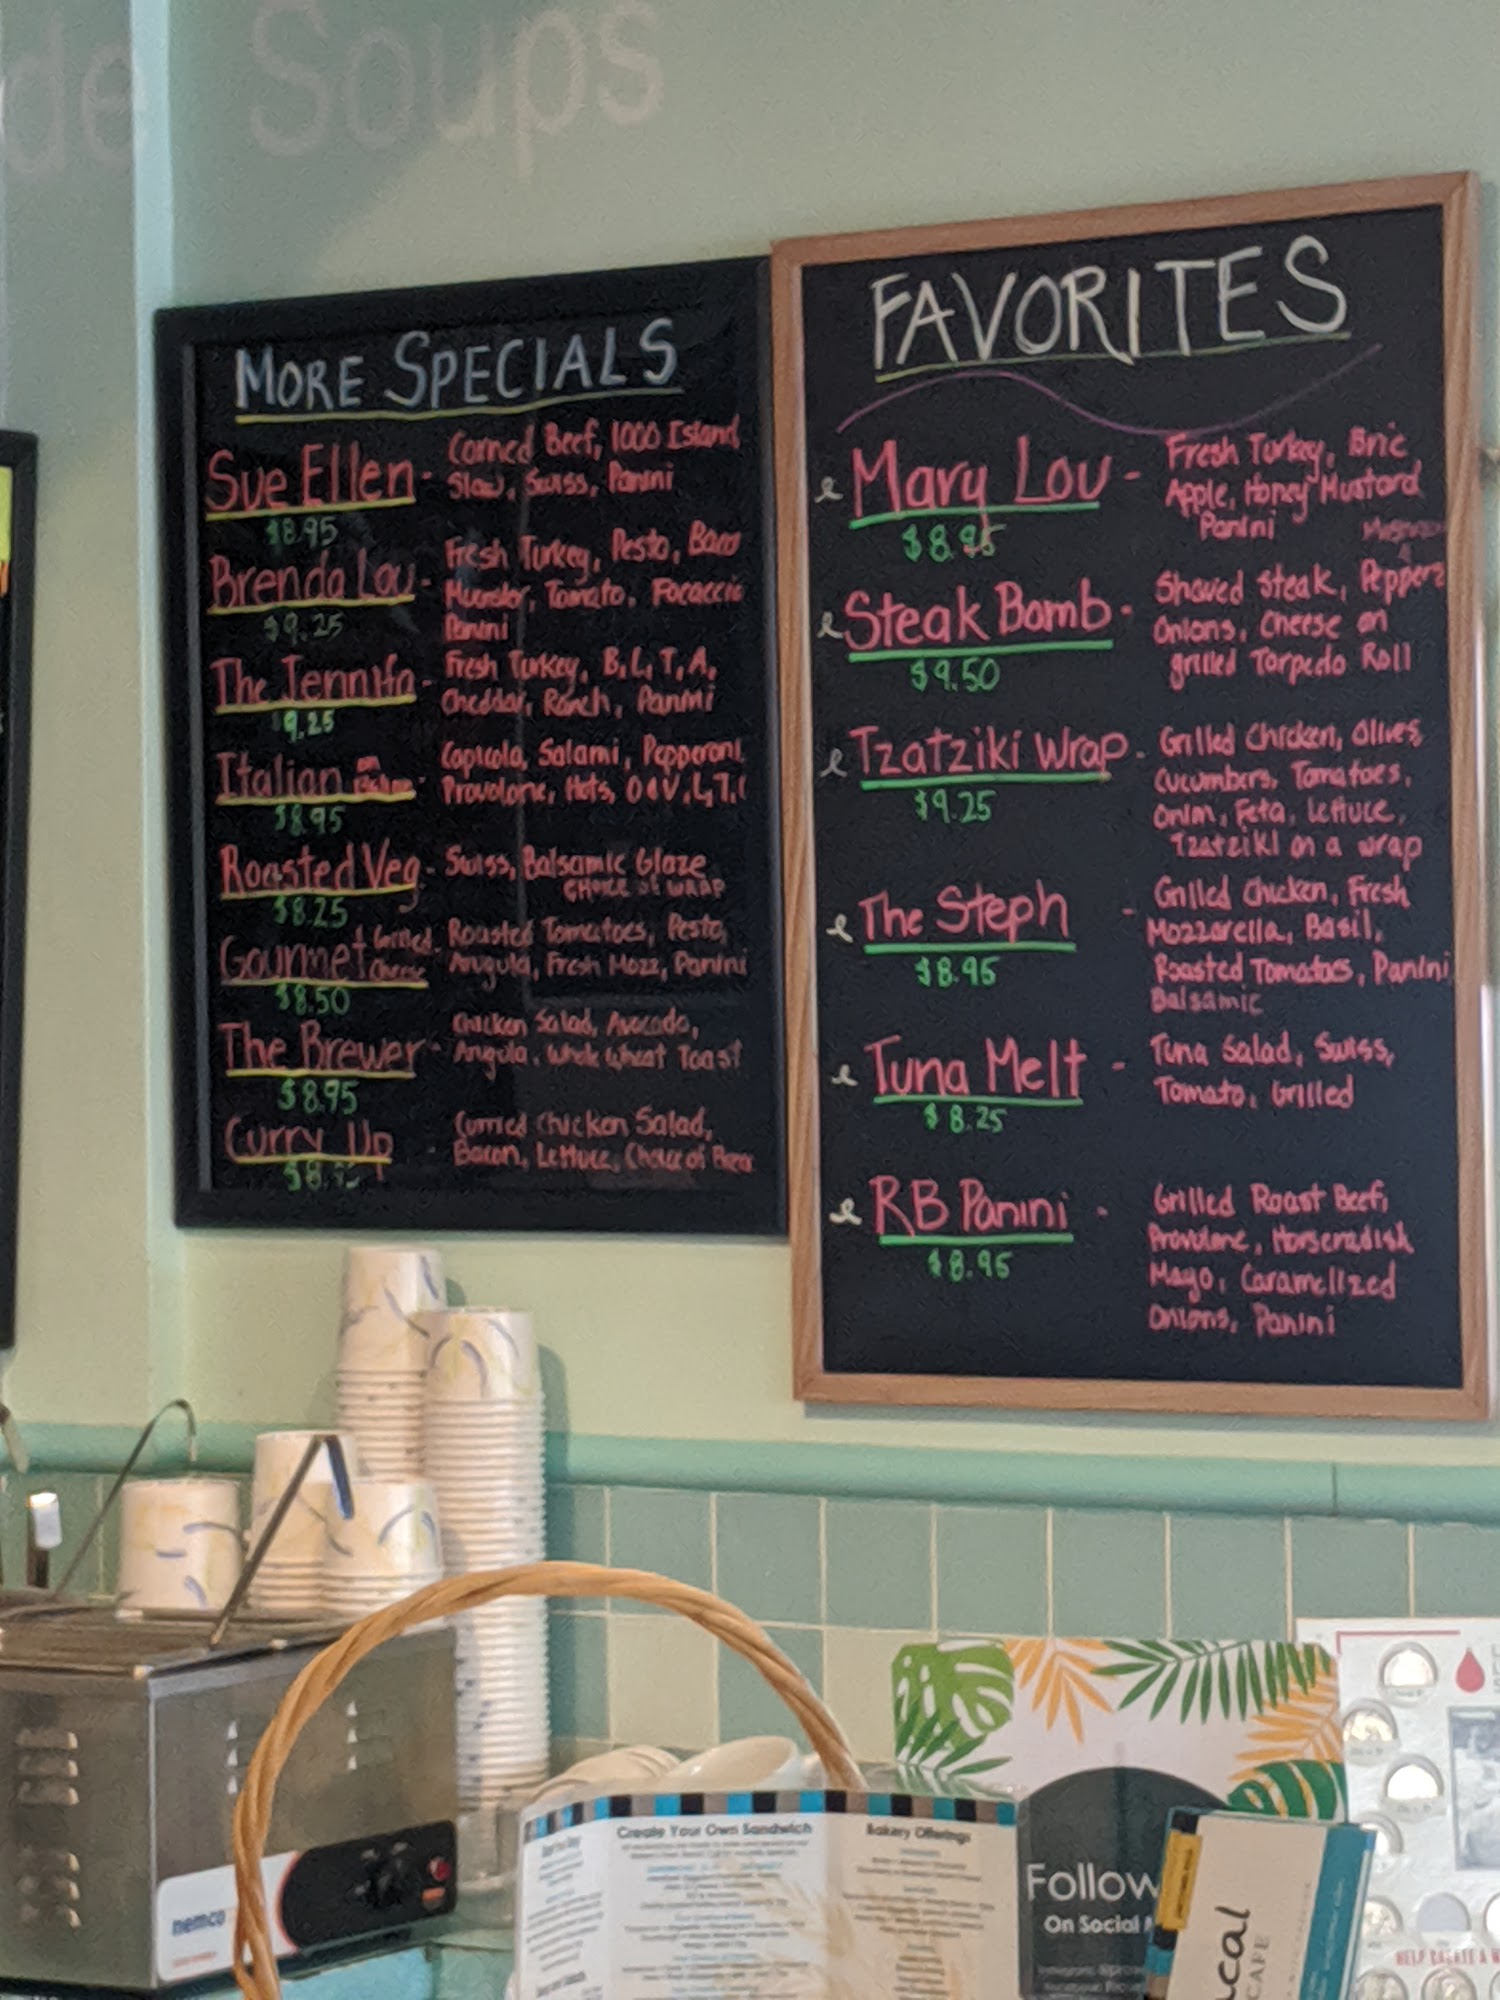 de Soups
MORE SPECIALS
Sue Ellen - Corned Beef, 1000 Island,
Slaw, Swiss, Panini
$8.95
Brenda Lou - Fresh Turkey, Pesto, Bacon
Muenster, Tomato, Focaccia
Panini
$9.25
The Jennifa - Fresh Turkey, B, L, T, A,
Cheddar, Ranch, Panini
$9.25
Italian - Capicola, Salami, Pepperoni,
Provolone, Hots, O&V, L, T,
$8.95
Roasted Veg - Swiss, Balsamic Glaze
CHOICE of WRAP
$8.25
Gourmet Grilled Cheese - Roasted Tomatoes, Pesto,
Arugula, Fresh Mozz, Panini
$8.50
The Brewer - Chicken Salad, Avocado,
Arugula, Whole Wheat Toast
$8.95
Curry Up - Curried Chicken Salad,
Bacon, Lettuce, Choice of
FAVORITES
Mary Lou - Fresh Turkey, Brie
Apple, Honey Mustard
Panini
$8.95
Steak Bomb - Shaved Steak, Peppers
Onions, Cheese on
grilled Torpedo Roll
$9.50
Tzatziki Wrap - Grilled Chicken, Olives,
Cucumbers, Tomatoes,
Onion, Feta, Lettuce,
Tzatziki on a wrap
$9.25
The Steph - Grilled Chicken, Fresh
Mozzarella, Basil,
Roasted Tomatoes, Panini,
Balsamic
$8.95
Tuna Melt - Tuna Salad, Swiss,
Tomato, Grilled
$8.25
RB Panini - Grilled Roast Beef,
Provolone, Horseradish
Mayo, Caramelized
Onions, Panini
$8.95
nemco
Create Your Own Sandwich
Bakery Offerings
Follow
On Social
ical
CAFE
HELP CREATE A